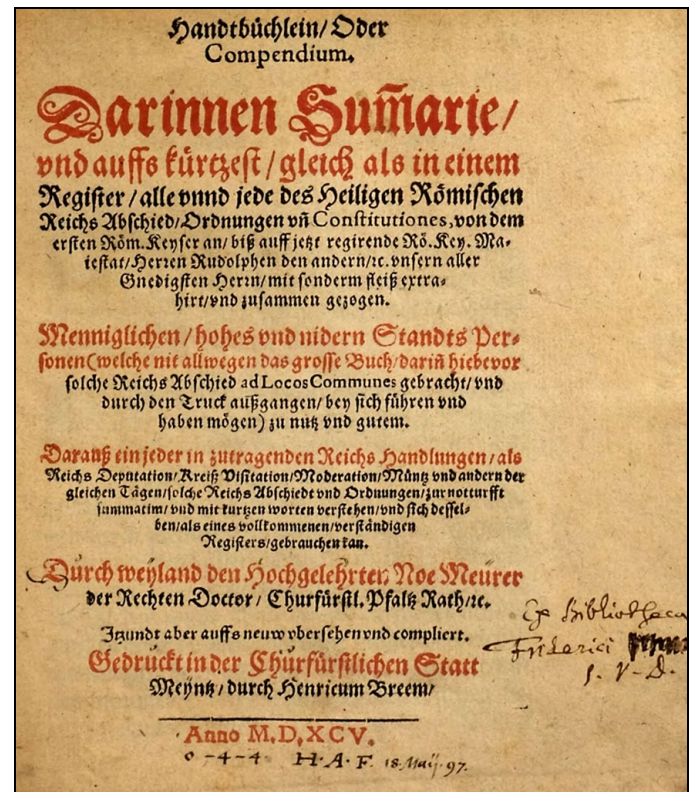 Handtbüchlein/ Oder
Compendium.
Darinnen Sum̃arie/
vnd auffs kürtzest/ gleich als in einem
Register/ alle vnnd jede des Heiligen Römischen
Reichs Abschied/ Ordnungen vñ Constitutiones, von dem
ersten Röm. Keyser an/ biß auff jetzt regirende Rö. Key. Ma-
iestat/ Herren Rudolphen den andern/ ꝛc. vnsern aller
Gnedigsten Herrn/ mit sonderm fleiß extra-
hirt/ vnd zusammen gezogen.
Menniglichen/ hohes vnd nidern Standts Per-
sonen (welche nit allwegen das grosse Buch/ dariñ hiebevor
solche Reichs Abschied ad Locos Communes gebracht/ vnd
durch den Truck außgangen/ bey sich führen vnd
haben mögen) zu nutz vnd gutem.
Darauß ein jeder in zutragenden Reichs Handlungen/ als
Reichs Deputation/ Kreiß Visitation/ Moderation/ Müntz vnd andern der
gleichen Tägen/ solche Reichs Abschiedt vnd Ordnungen/ zur notturfft
summatim/ vnd mit kurtzen worten verstehen/ vnd sich dessel-
ben/ als eines vollkommenen/ verständigen
Registers/ gebrauchen kan.
Durch weyland den Hochgelehrten Noe Meurer
der Rechten Doctor/ Churfürstl. Pfaltz Rath/ ꝛc.
Jtzundt aber auffs neuw vbersehen vnd compliert.
Gedruckt in der Churfürstlichen Statt
Meyntz/ durch Henricum Breem/
Anno M.D.XCV.
Ex Bibliotheca
Friderici
J. V. D.
0-4-4 H.A.F. 18. Maij. 97.